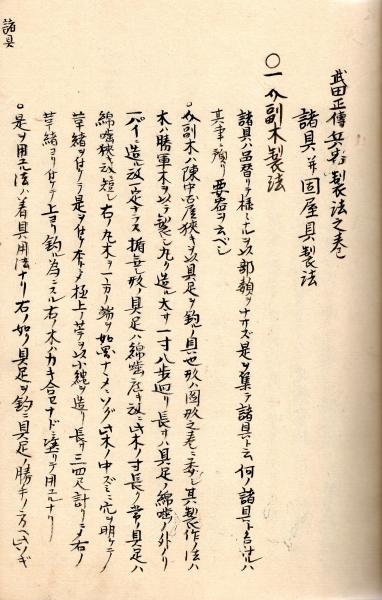 武田正傳兵器製法之巻
諸具并固屋具製法
○一 分副木製法
諸具ハ品替リテ様〻ナルヲ以部類ヲナサズ是ヲ集テ諸具ト云何ノ諸具ト名付ルハ
其事ノ頭ニ要器ヲ云ベシ
○分副木ハ陳中固屋狭キヲ以具足ヲ釣ノ具也形ハ圖形之巻ニ委シ其製作ノ法ハ
木ハ勝軍木ヲ以テ製シ丸ク造ル大サ一寸八歩廻リ長サハ具足ノ綿噛ノ外ノリ
一パイニ造ル故一定ナラズ楯無シ形ノ具足ハ綿噛廣キ故ニ此木ノ寸長ク常ノ具足ハ
綿噛狭キ故短シ右ノ丸木ヲ一方ノ端ヲ如圖ナナメニソグ此木ノ中ズミニ穴ヲ明ケテ
苧緒ヲ付ケテ是ヲ付ケ本トシテ極上ノ苧ヲ以小縄ヲ造リ長サ三四尺計リニシテ右ノ
苧緒ヨリ付ケテ上ヨリ釣ル為ニスル右ノ木ハカキ合セナドニ塗リテ用エルナリ
○是ヲ用エル法ハ着具用法ナリ右ノ如ク具足ヲ釣ニ具足ノ勝手ノ方ヘ此ソギ
諸具